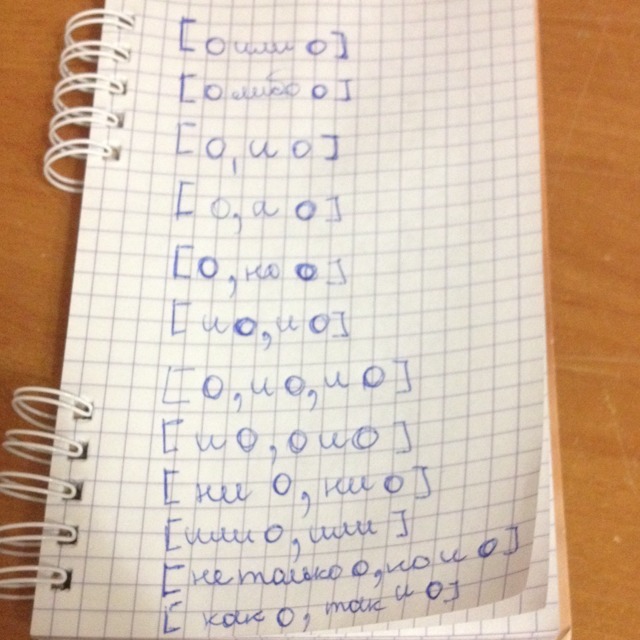 [о или о]
[о либо о]
[о, и о]
[о, а о]
[о, но о]
[и о, и о]
[о, и о, и о]
[и о, о и о]
[ни о, ни о]
[или о, или]
[не только о, но и о]
[как о, так и о]